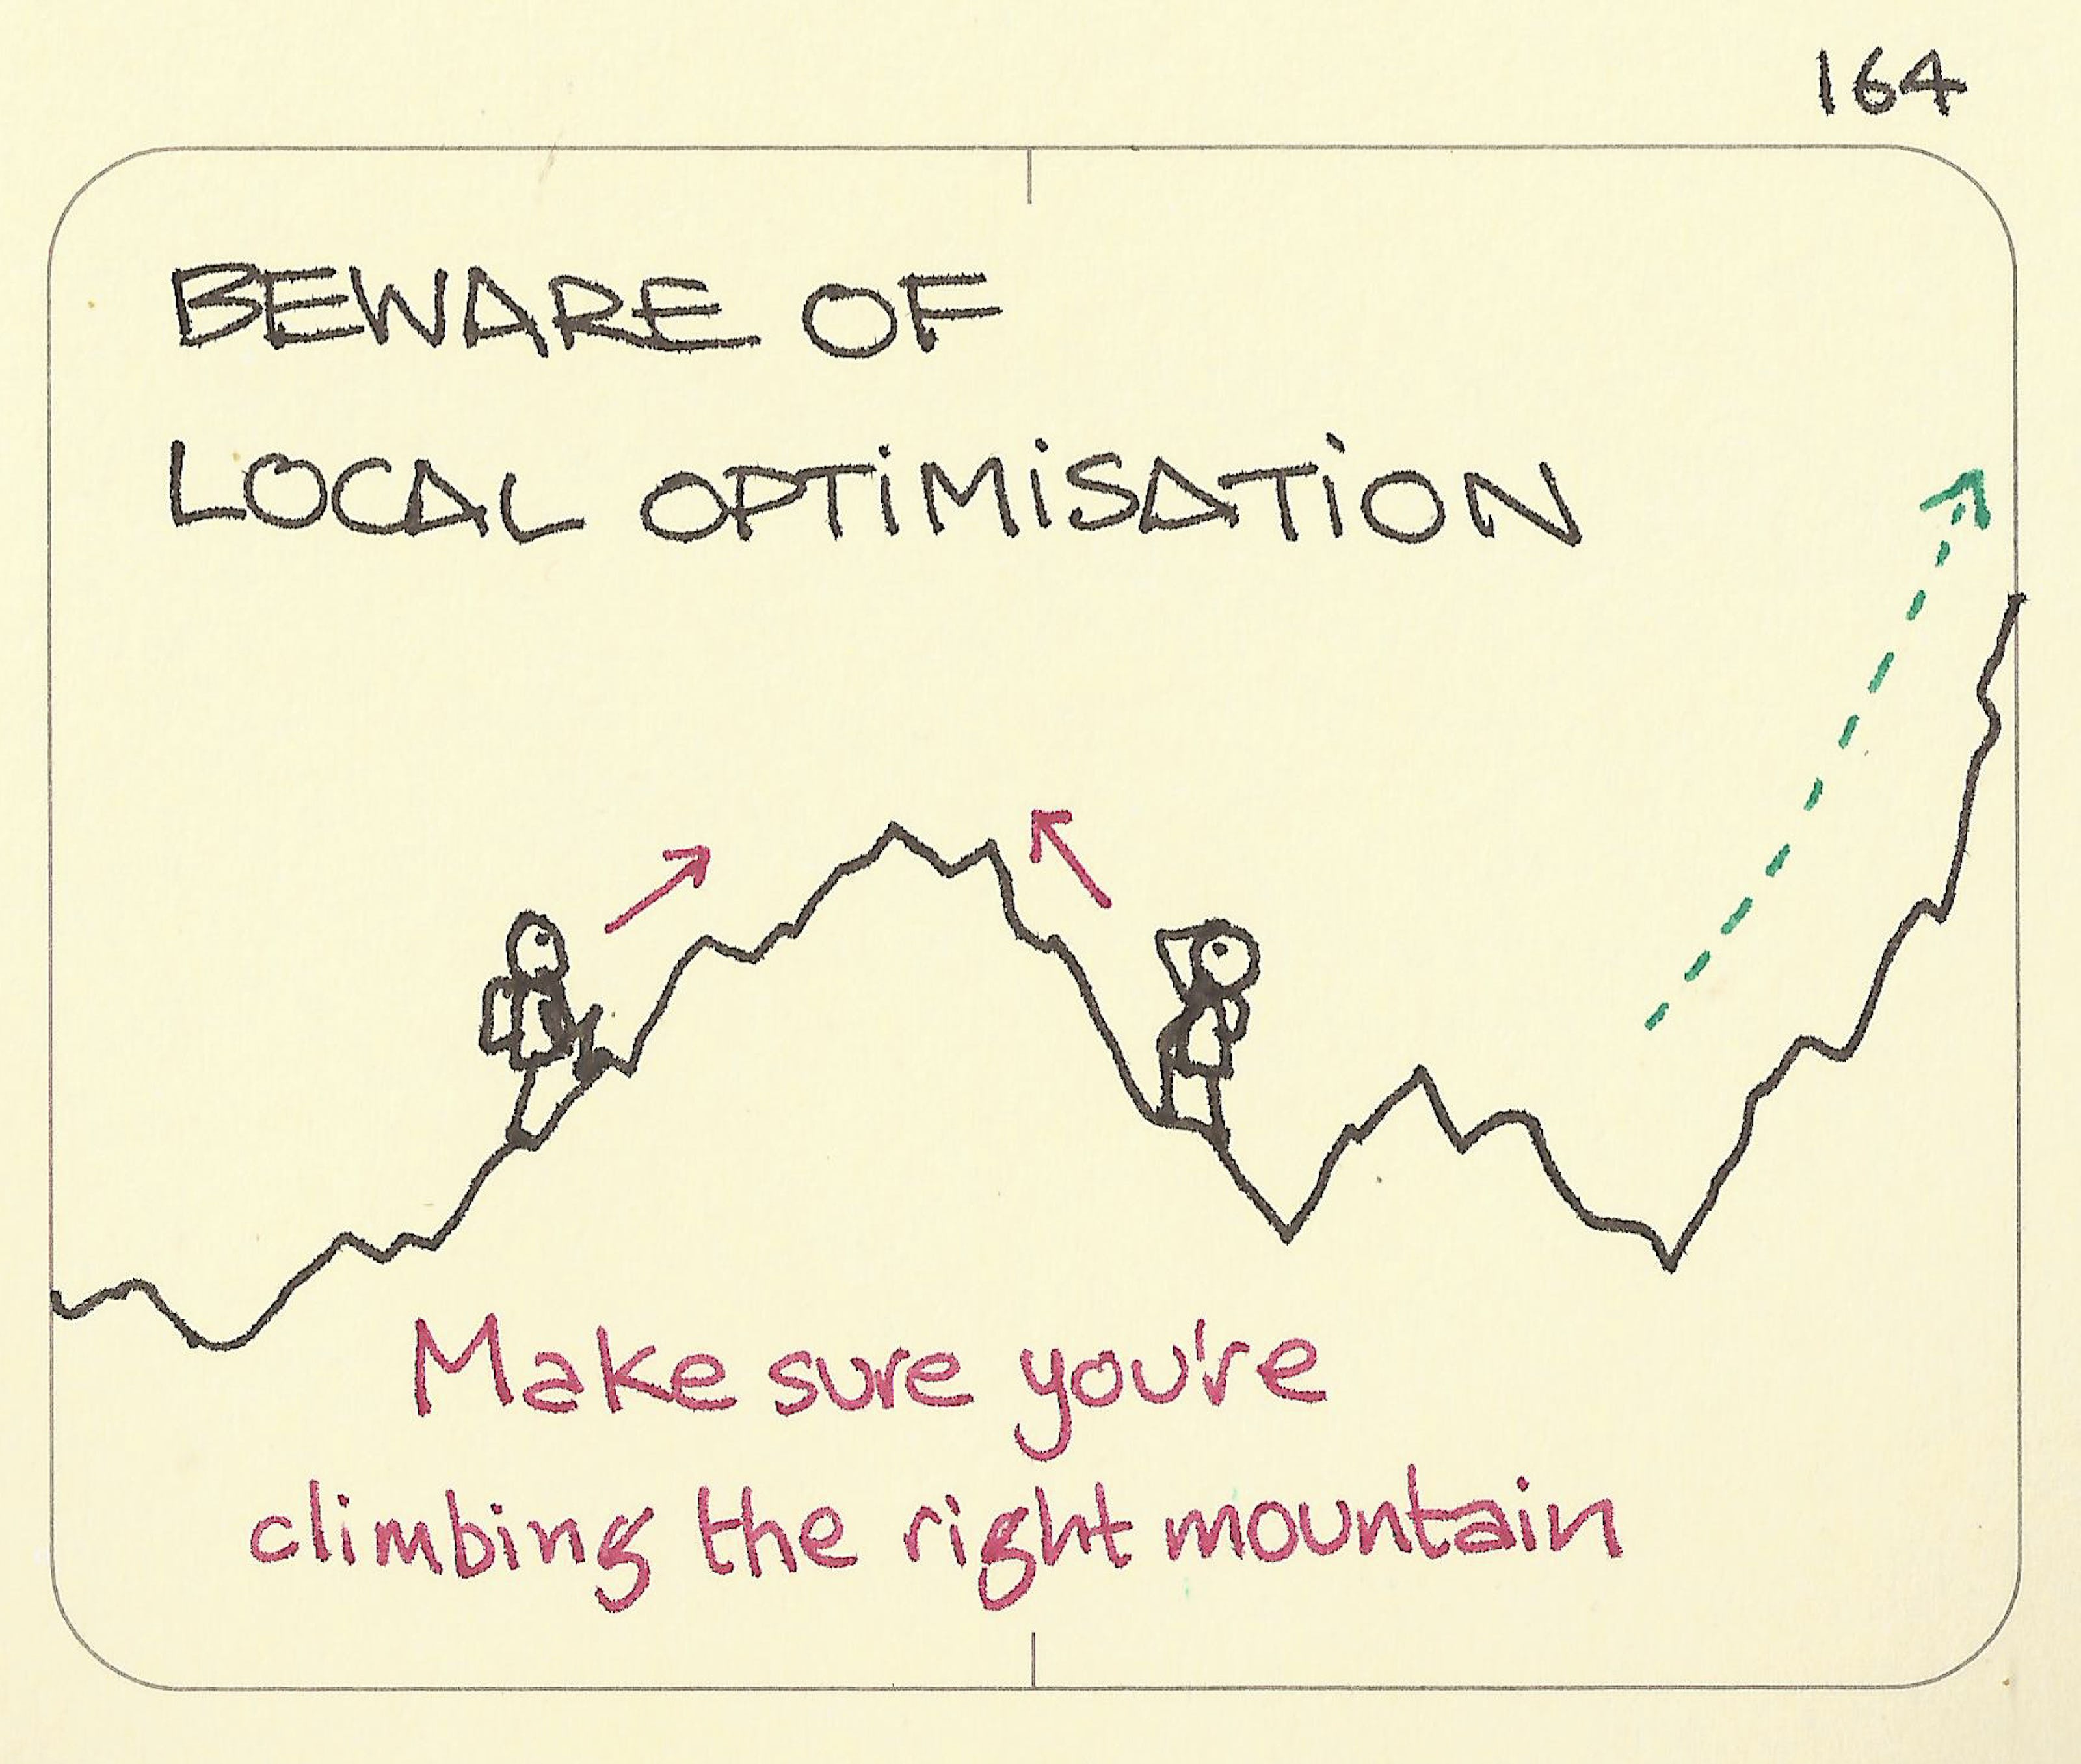 164
BEWARE OF
LOCAL OPTIMISATION
Make sure you're
climbing the right mountain